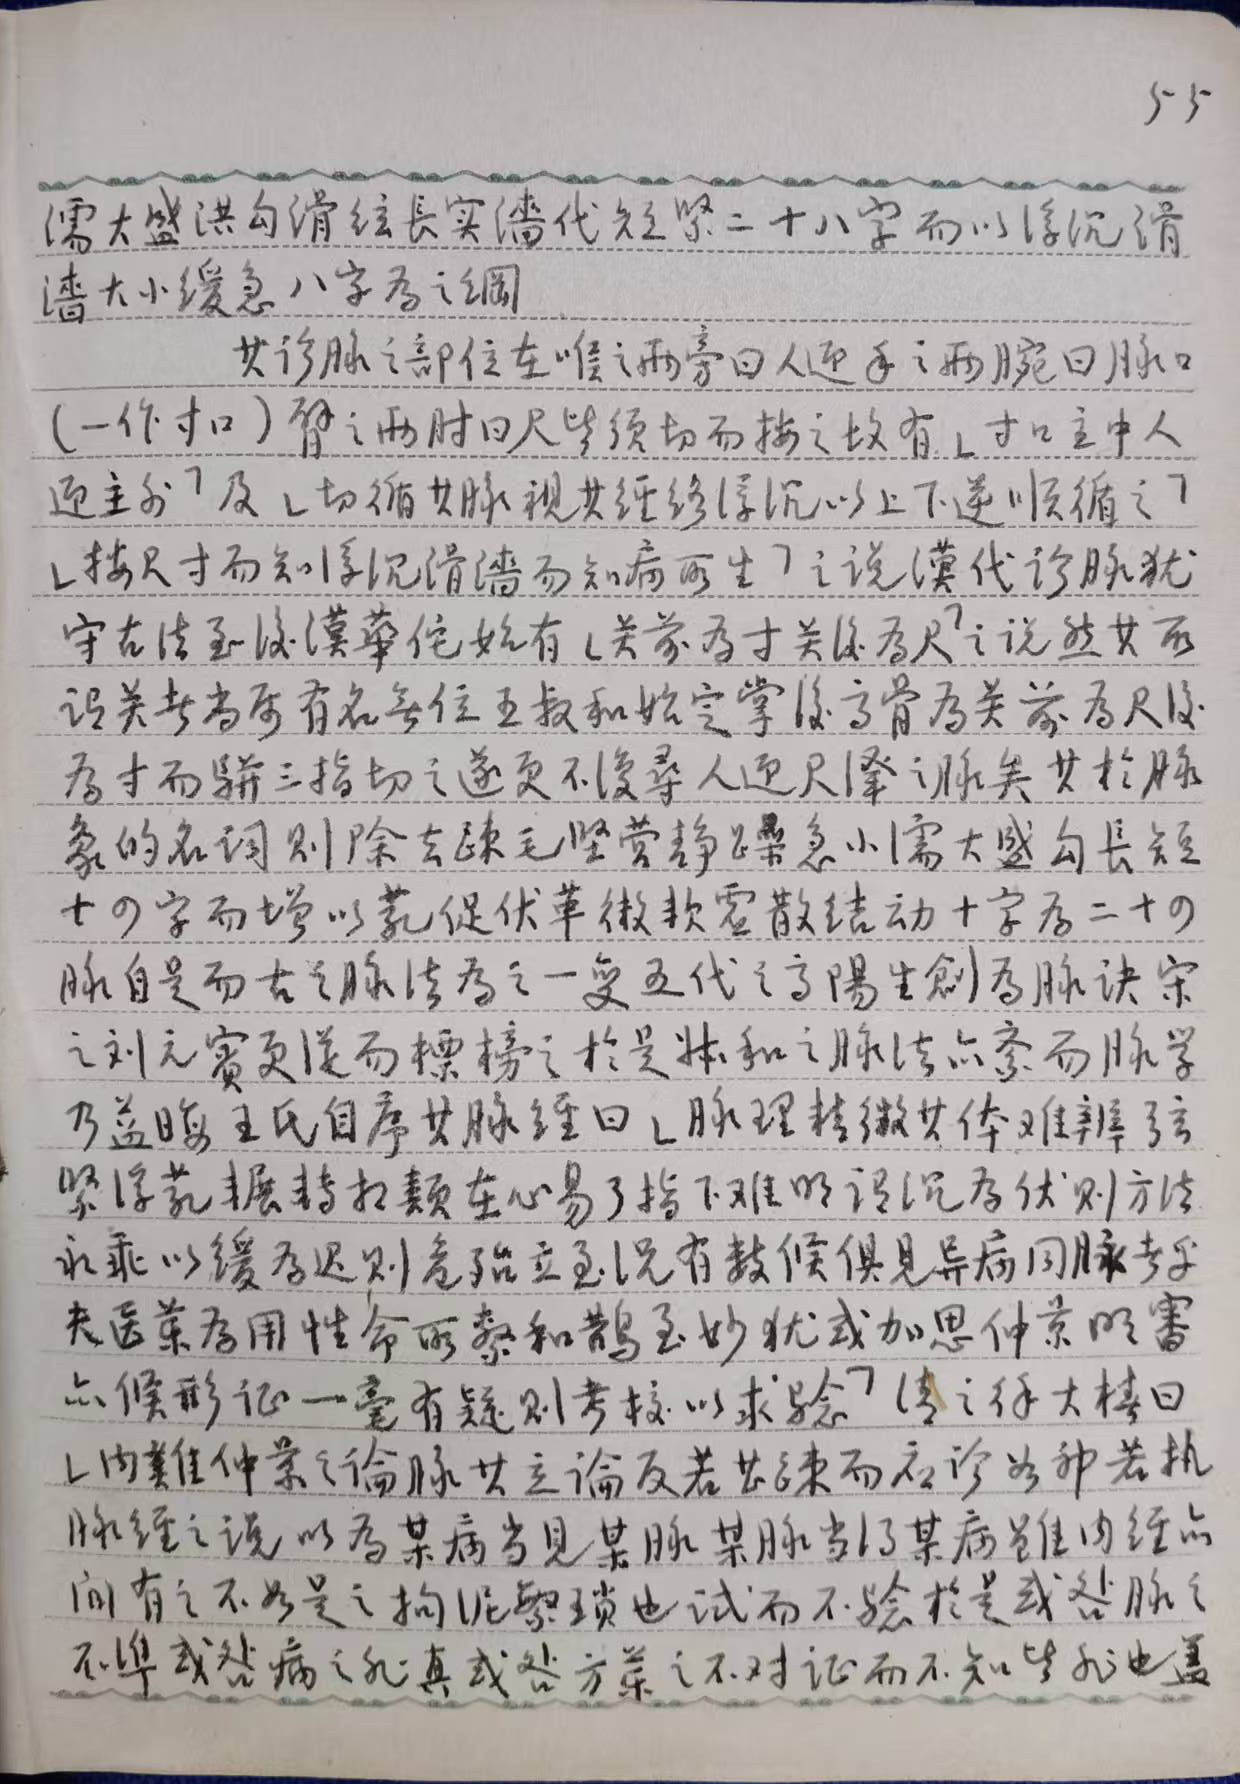 55
濡大盛洪勾滑弦長实濇代短緊二十八字而以浮沉滑
濇大小缓急八字为之綱
其诊脉之部位在喉之两旁曰人迎手之两腕曰脉口
(一作寸口)臂之两肘曰尺皆须切而按之故有「寸口主中人
迎主外」及「切循其脉視其经络浮沉以上下逆順循之」
「按尺寸而知浮沉滑濇而知病所生」之说漢代诊脉犹
守古法至後漢華佗始有「关前为寸关後为尺」之说然其所
谓关者尚属有名無位王叔和始定掌後高骨为关前为尺後
为寸而骈三指切之遂更不復尋人迎尺澤之脉矣其於脉
象的名词则除去疎毛坚营静躁急小濡大盛勾長短
十四字而增以芤促伏革微软虚散结动十字为二十四
脉自是而古之脉法为之一变五代之高陽生創为脉诀宋
之刘元賓更從而標榜之於是叔和之脉法亦紊而脉学
乃益晦王氏自序其脉经曰「脉理精微其体难辨弦
緊浮芤展轉相類在心易了指下难明谓沉为伏则方法
永乖以缓为迟则危殆立至况有数候俱見异病同脉者乎
夫医药为用性命所繫和鵲至妙犹或加思仲景明審
亦候形证一毫有疑则考校以求驗」清之徐大椿曰
「内難仲景之論脉其立論反若甚疎而应诊如神若执
脉经之说以为某病当見某脉某脉当得某病雖内经亦
间有之不如是之拘泥繁瑣也试而不驗於是或咎脉之
不準或咎病之非真或咎方药之不对证而不知皆非也蓋